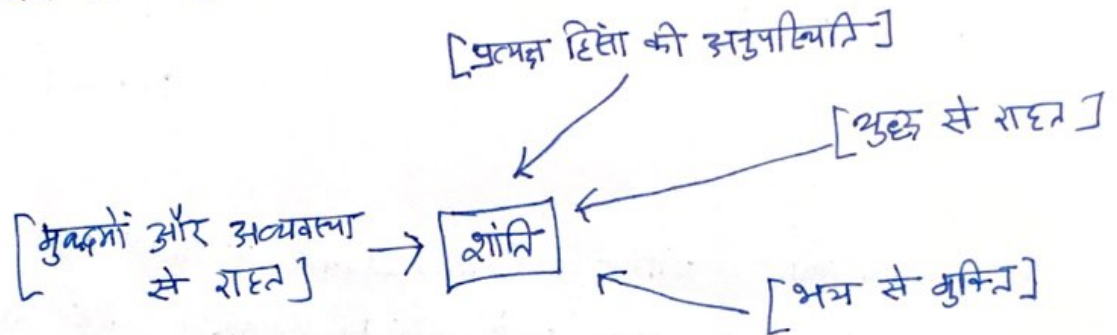 [प्रत्यक्ष हिंसा की अनुपस्थिति]
[युद्ध से राहत]
[मुकदमों और अव्यवस्था
से राहत]
शांति
[भय से मुक्ति]